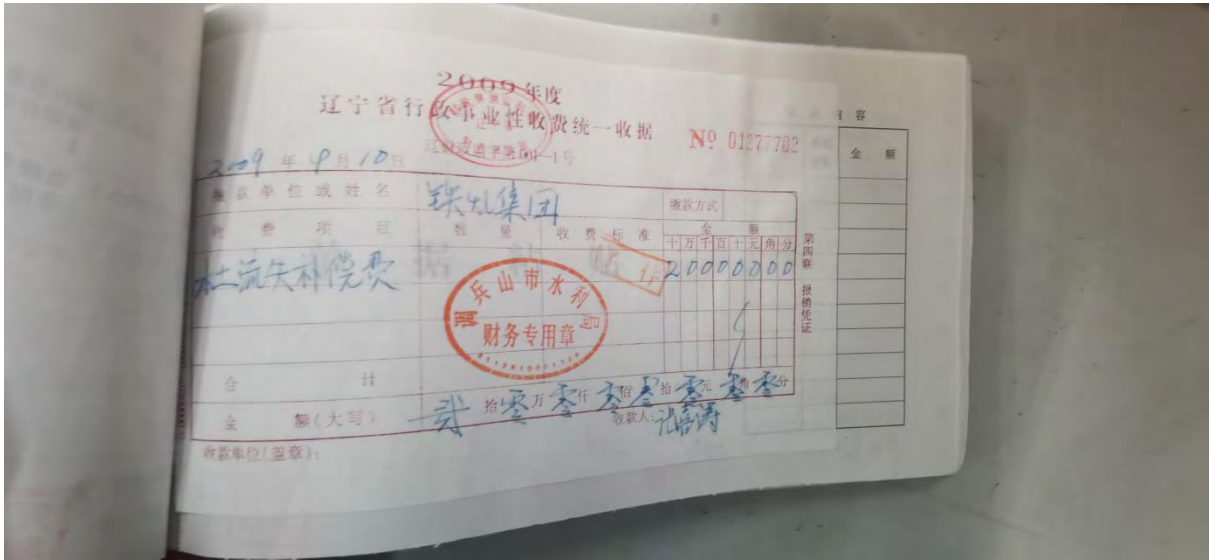 2009年度
辽宁省行政事业性收费统一收据
№ 01277702
2009 年 9 月 10 日
缴款单位或姓名 铁煤集团 缴款方式
收费项目 数量 收费标准 金额
十万千百十元角分
水土流失补偿费 20000000
调兵山市水利局
财务专用章
合计
金额(大写) 贰拾零万零仟零佰零拾零元零角零分
收款单位(盖章): 收款人:
第四联 报销凭证
金额